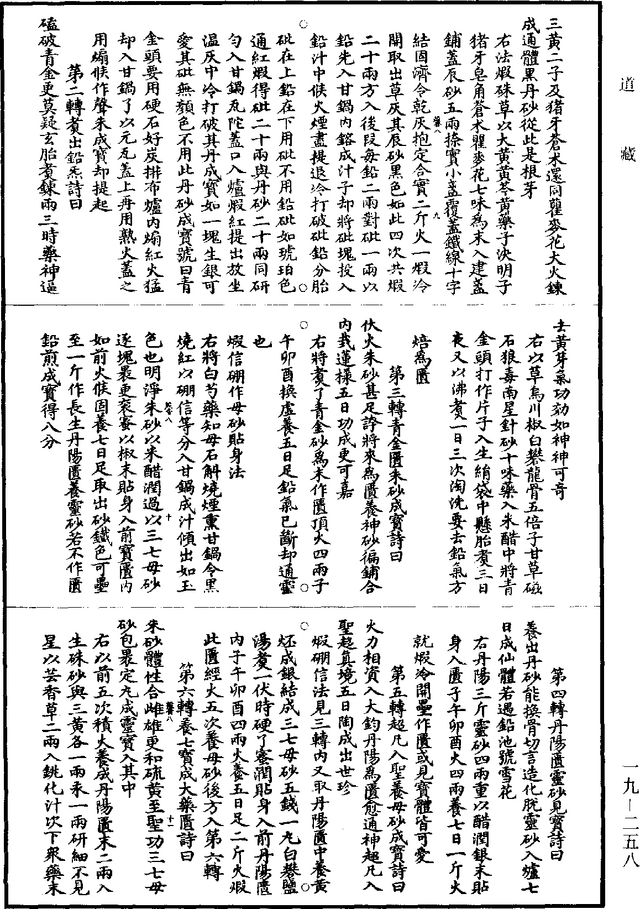 道藏
三黃二子及猪牙蒼朮還同瞿麥花大火鍊
成通體黑丹砂從此是根牙
右法煅硃草以大黃黃芩黃藥子決明子
猪牙皂角蒼朮瞿麥花七味爲末入建盞
鋪蓋辰砂五兩捺實小盞覆蓋鐵線十字
結固濟令乾灰抱定合實二斤火一煅冷
開取出草灰其辰砂黑色如此四次共煅
二十兩方入後段每鉛二兩對砒一兩以
鉛先入甘鍋內鎔成汁子却將砒塊投入
鉛汁中候火煙盡提退冷打破砒鉛分胎
砒在上鉛在下用砒不用鉛砒如琥珀色
通紅煅得砒二十兩與丹砂二十兩同研
勻入甘鍋瓦陀蓋口入爐煅紅提出放坐
溫灰中冷打破其丹成寶如一塊生銀可
愛其砒無顏色不用此丹砂成寶號曰青
金頭要用硬石好炭排布爐內煽紅火猛
却入甘鍋了以元瓦蓋上再用熟火蓋之
用煽候作聲朱成寶却提起
第二轉煑出鉛炁詩曰
磕破青金更莫疑玄胎煑鍊兩三時藥神逼
去黃芽氣功効如神神可奇
右以草烏川椒白礬龍骨五倍子甘草磁
石狼毒南星針砂十味藥入米醋中將青
金頭打作片子入生絹袋中懸胎煑三日
夜又以沸煑一日三次淘洗要去鉛氣方
焙爲匱
第三轉青金匱朱砂成寶詩曰
伏火朱砂甚足誇將來爲匱養神砂徧鋪合
內栽蓮樣五日功成更可嘉
右將煑了青金砂爲末作匱頂火四兩子
午卯酉換虛養五日足鉛氣已斷却通靈
也
煅信硼作母砂貼身法
右將白芍藥知母石斛燒煙熏甘鍋令黑
燒紅以硼信等分入甘鍋成汁傾出如玉
色也明淨朱砂以米醋潤過以三七母砂
逐塊最更衮蜜以椒末貼身入前寶匱內
如前火候固養七日足取出砂鐵色可壘
至一斤作長生丹陽匱養靈砂若不作匱
鉛煎成寶得八分
第四轉丹陽匱靈砂見寶詩曰
養出丹砂能換骨切言造化脫靈砂入爐七
日成仙體若遇鉛池號雪花
右丹陽三斤靈砂四兩重以醋潤銀末貼
身入匱子午卯酉火四兩養七日一斤火
就煅冷開壘作匱或見寶體皆可愛
第五轉超凡入聖養母砂成寶詩曰
火力相資入大鈞丹陽爲匱愈通神超凡入
聖超真境五日陶成出世珍
煅硼信法見三轉內又取丹陽匱中養黃
坯成銀結成三七母砂五錢一丸白礬鹽
湯煑一伏時硬了蜜潤貼身入前丹陽匱
內子午卯酉四兩火養五日足二斤火煅
此匱經火五次養母砂後方入第六轉
第六轉養七寶成大藥匱詩曰
朱砂體性合雌雄更和硫黃至聖功三七母
砂包最定九成靈寶入其中
右以前五次積大養成丹陽匱末二兩入
生硃砂與三黃各一兩釆一兩研細不見
星以芸香草二兩入銚化汁次下衆藥末
一九—二五八